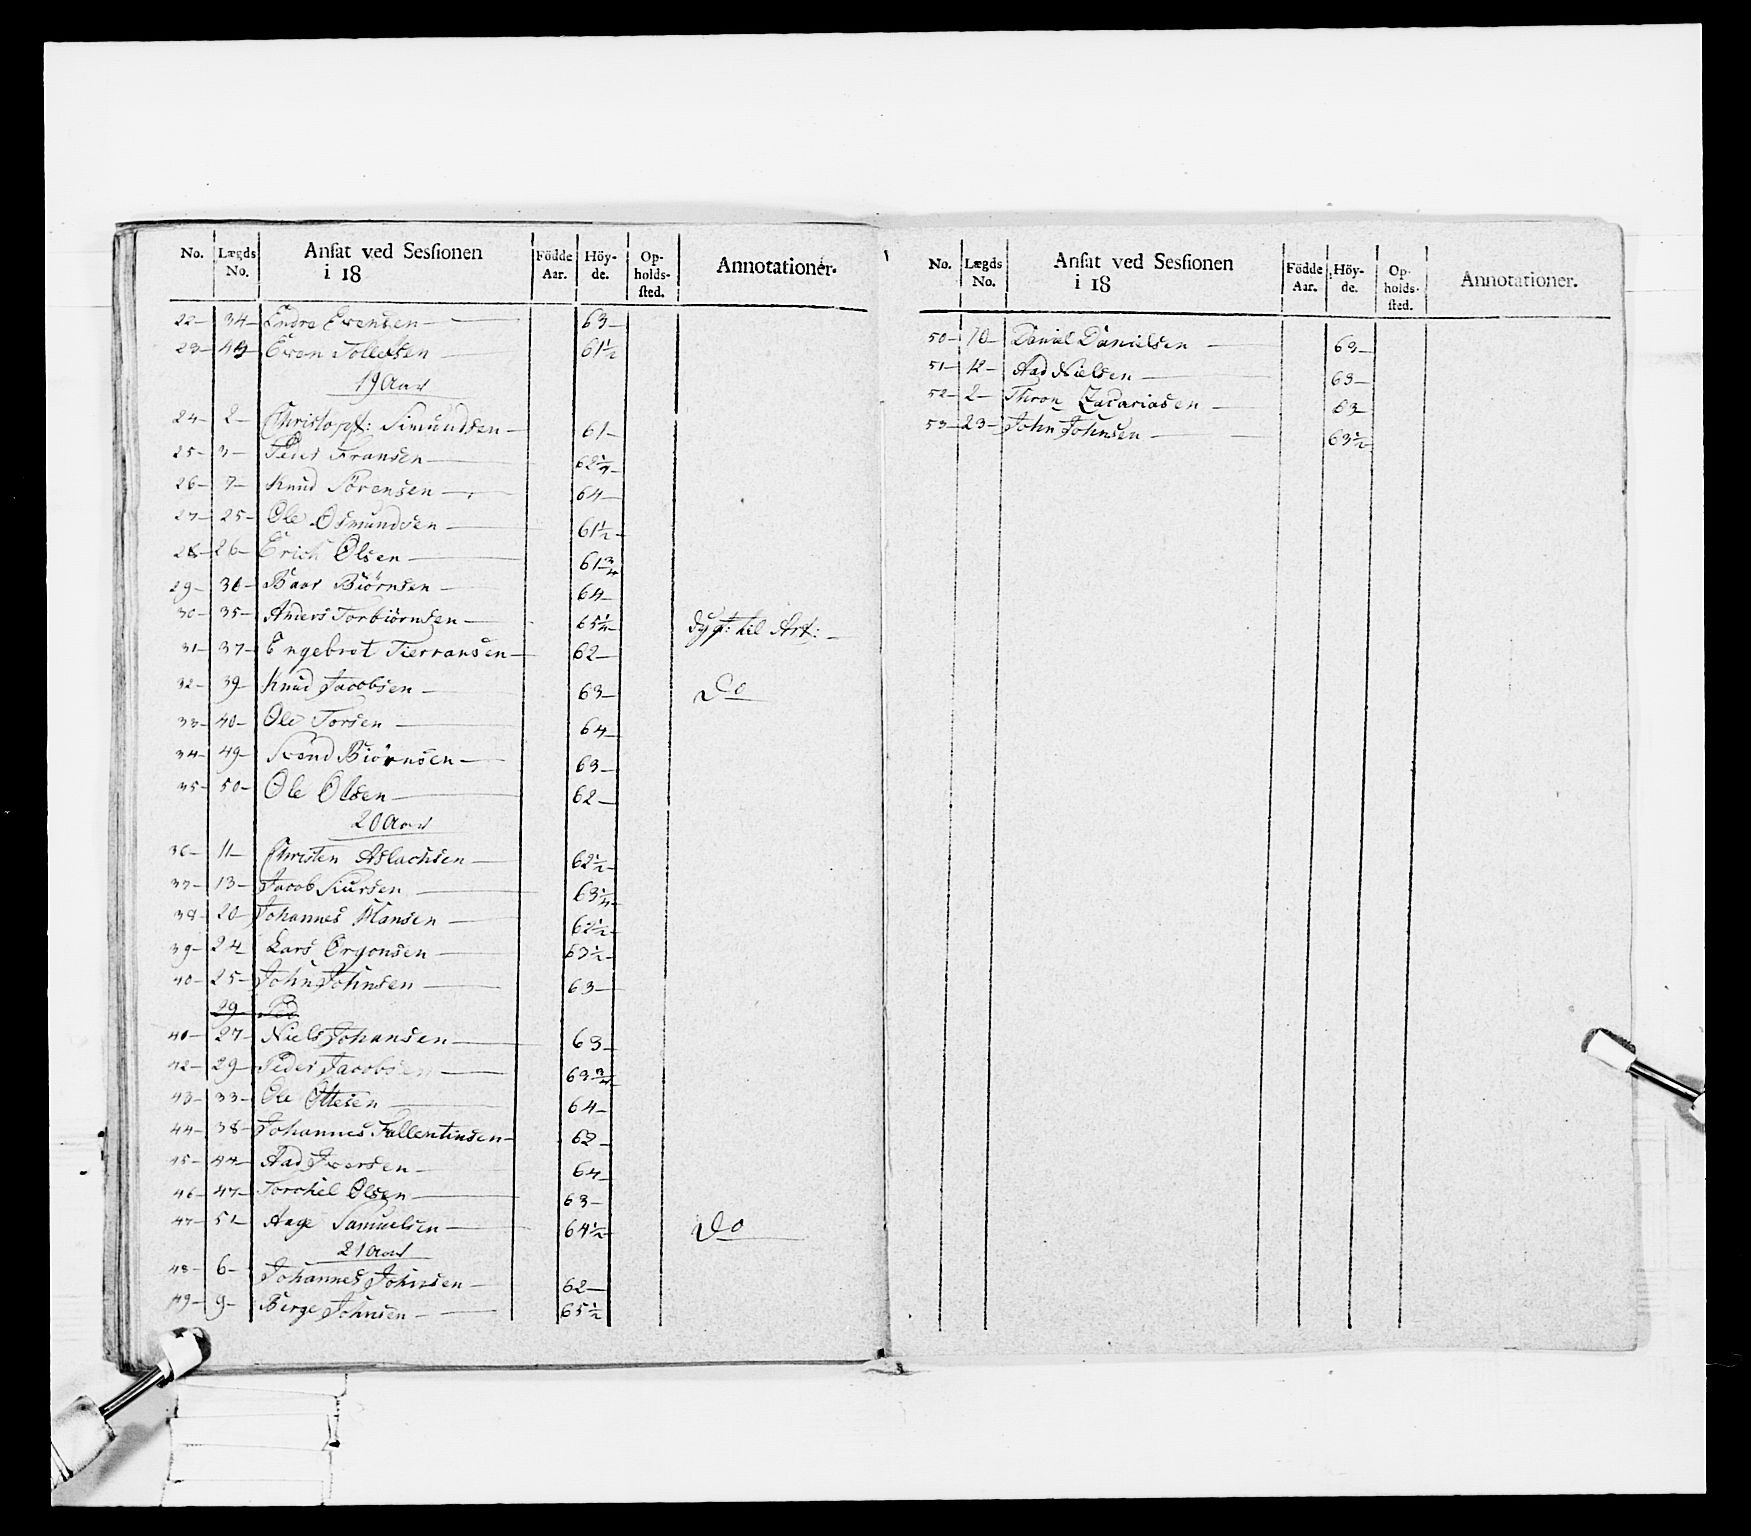 No. Lægds No. Ansat ved Sessionen i 18 Födde Aar. Höy-de. Op-holds-sted. Annotationer.
22 34 Endre Evensen 63
23 49 Even Tollefsen 61½
19 Aar
24 2 Christoph: Simundsen 61
25 3 Fransen 62½
26 7 Knud Sörensen 64
27 25 Ole Osmundsen 61½
28 26 Erich Olsen 61¾
29 30 Baar Biörnsen 64
30 35 Anders Torbiörnsen 65¼ dygt: til Art:
31 37 Engebret Tierransen 62
32 39 Knud Jacobsen 63 Do
33 40 Ole Torsen 64
34 49 Svend Biörnsen 63
35 50 Ole Olsen 62
20 Aar
36 11 Christen Aslachsen 62½
37 13 Jacob Siursen 63¼
38 20 Johannes Hansen 62½
39 24 Lars Örgonsen 63½
40 25 John Johnsen 63
29 Ped
41 27 Niels Johansen 63
42 29 Peder Jacobsen 63¾
43 33 Ole Ottesen 64
44 38 Johannes Fallentinsen 62
45 44 Aad Iversen 64
46 47 Torchel Olsen 63
47 51 Aage Samuelsen 64½ Do
21 Aar
48 6 Johannes Johnsen 62
49 9 Berge Johnsen 65½
No. Lægds No. Ansat ved Sessionen i 18 Födde Aar. Höy-de. Op-holds-sted. Annotationer.
50 10 Daniel Danielsen 63
51 12 Aad Nielsen 63
52 2 Thron Zacariasen 63
53 23 John Johnsen 63½